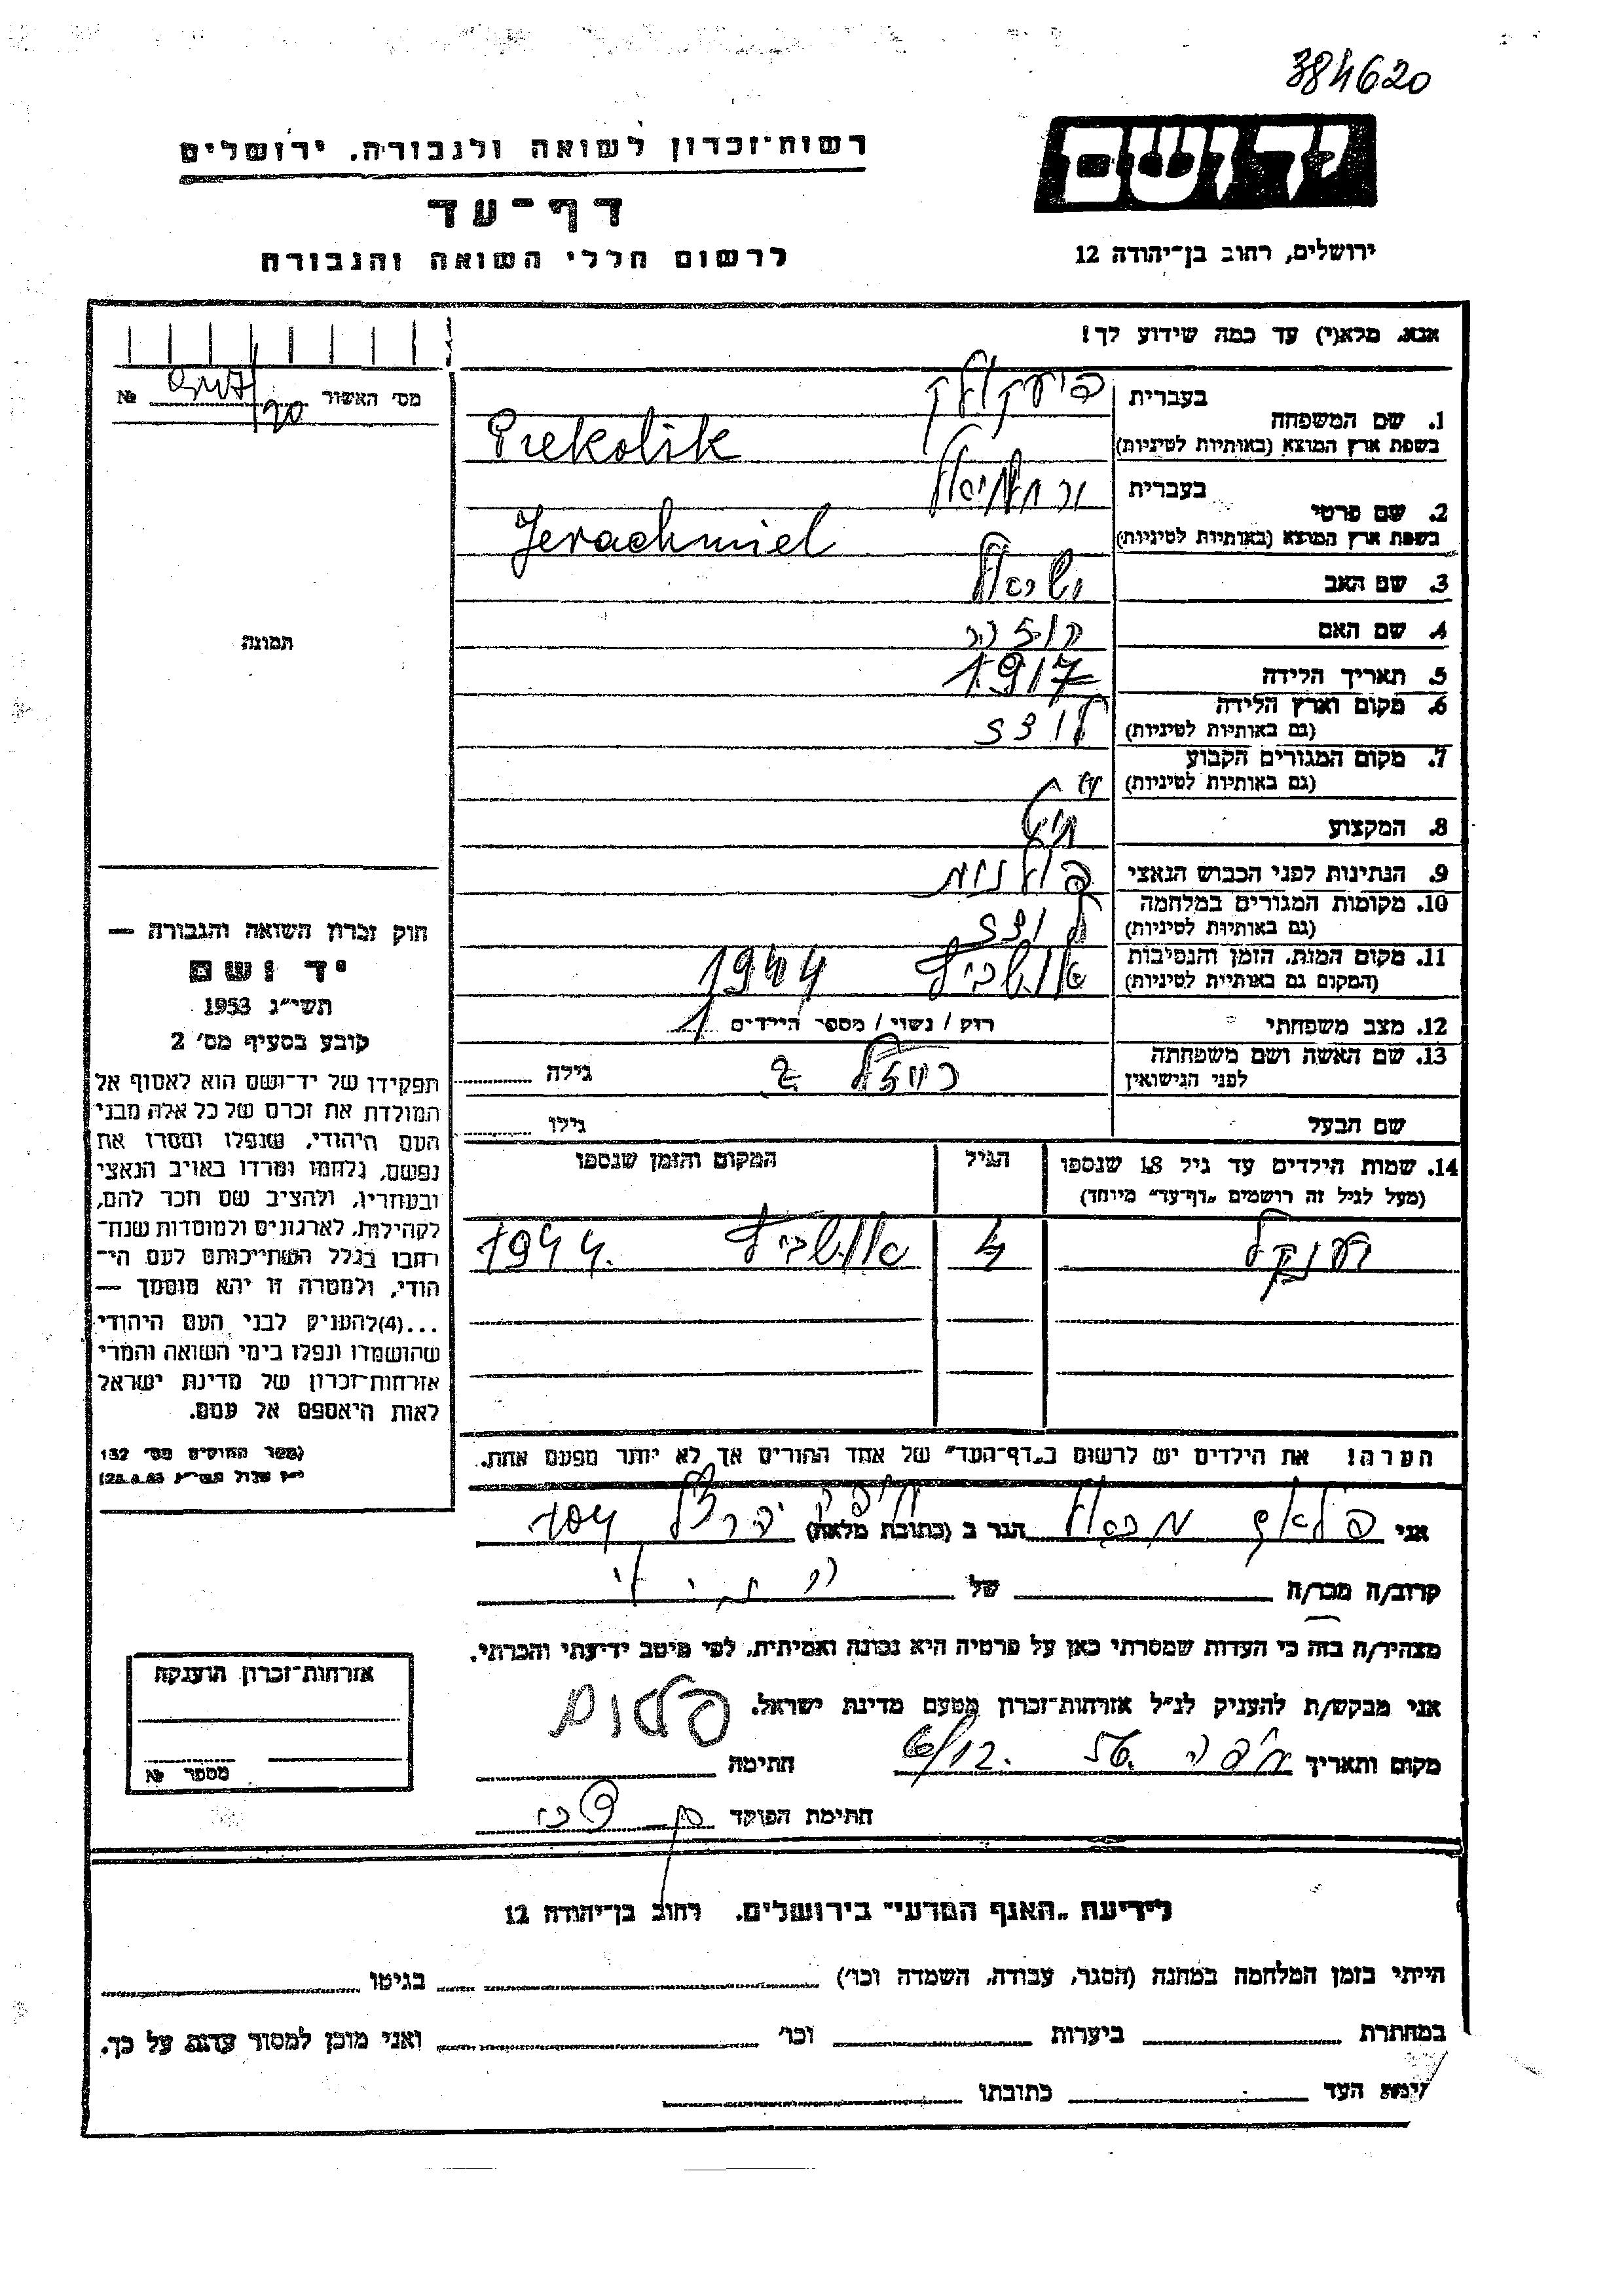 384620
רשות־זכרון לשואה ולגבורה, ירושלים
יד ושם
דף־עד
לרשום חללי השואה והגבורה
ירושלים, רחוב בן־יהודה 12
אנא, מלא(י) עד כמה שידוע לך!
מס׳ האשור №
1. שם המשפחה
בעברית
בשפת ארץ המוצא (באותיות לטיניות) Prekolik
2. שם פרטי
בעברית ירחמיאל
בשפת ארץ המוצא (באותיות לטיניות) Jerachmiel
3. שם האב ישראל
4. שם האם
5. תאריך הלידה 1917
6. מקום וארץ הלידה לודז
(גם באותיות לטיניות)
7. מקום המגורים הקבוע
(גם באותיות לטיניות)
8. המקצוע
9. הנתינות לפני הכבוש הנאצי פולנית
10. מקומות המגורים במלחמה לודז
(גם באותיות לטיניות)
11. מקום המות, הזמן והנסיבות אושביץ 1944
(המקום גם באותיות לטיניות)
12. מצב משפחתי רוק / נשוי / מספר הילדים 1
13. שם האשה ושם משפחתה
לפני הנישואין גילה
שם הבעל גילו
14. שמות הילדים עד גיל 18 שנספו הגיל המקום והזמן שנספו
(מעל לגיל זה רושמים „דף־עד״ מיוחד)
4 אושביץ 1944.
הערה! את הילדים יש לרשום ב„דף־העד״ של אחד ההורים אך לא יותר מפעם אחת.
תמונה
חוק זכרון השואה והגבורה —
יד ושם
תשי״ג 1953
קובע בסעיף מס׳ 2
תפקידו של יד־ושם הוא לאסוף אל
המולדת את זכרם של כל אלה מבני
העם היהודי, שנפלו ומסרו את
נפשם, נלחמו ומרדו באויב הנאצי
ובעוזריו, ולהציב שם וזכר להם,
לקהילות, לארגונים ולמוסדות שנח־
רבו בגלל השתייכותם לעם הי־
הודי, ולמטרה זו יהא מוסמך —
...(4)להעניק לבני העם היהודי
שהושמדו ונפלו בימי השואה והמרי
אזרחות־זכרון של מדינת ישראל
לאות היאספם אל עמם.
(ספר החוקים מס׳ 132
אני הגר ב (כתובת מלאה)
קרוב/ה מכר/ה של
מצהיר/ה בזה כי העדות שמסרתי כאן על פרטיה היא נכונה ואמיתית, לפי מיטב ידיעתי והכרתי.
אני מבקש/ת להעניק לנ״ל אזרחות־זכרון מטעם מדינת ישראל.
מקום ותאריך חיפה 6/12. 56 חתימה
חתימת הפוקד
אזרחות־זכרון הוענקה
מספר №
לידיעת „האגף המדעי״ בירושלים, רחוב בן־יהודה 12
הייתי בזמן המלחמה במחנה (הסגר, עבודה, השמדה וכו׳) בגיטו
במחתרת ביערות וכו׳ ואני מוכן למסור עדות על כך.
העד כתובתו